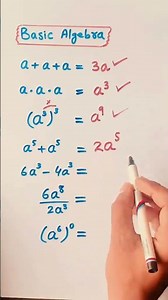 Basic Algebra
a + a + a = 3a ✓
a . a . a = a³ ✓
(a³)³ = a⁹ ✓
a⁵ + a⁵ = 2a⁵
6a³ - 4a³ =
6a⁸/2a³ =
(a⁶)⁰ =